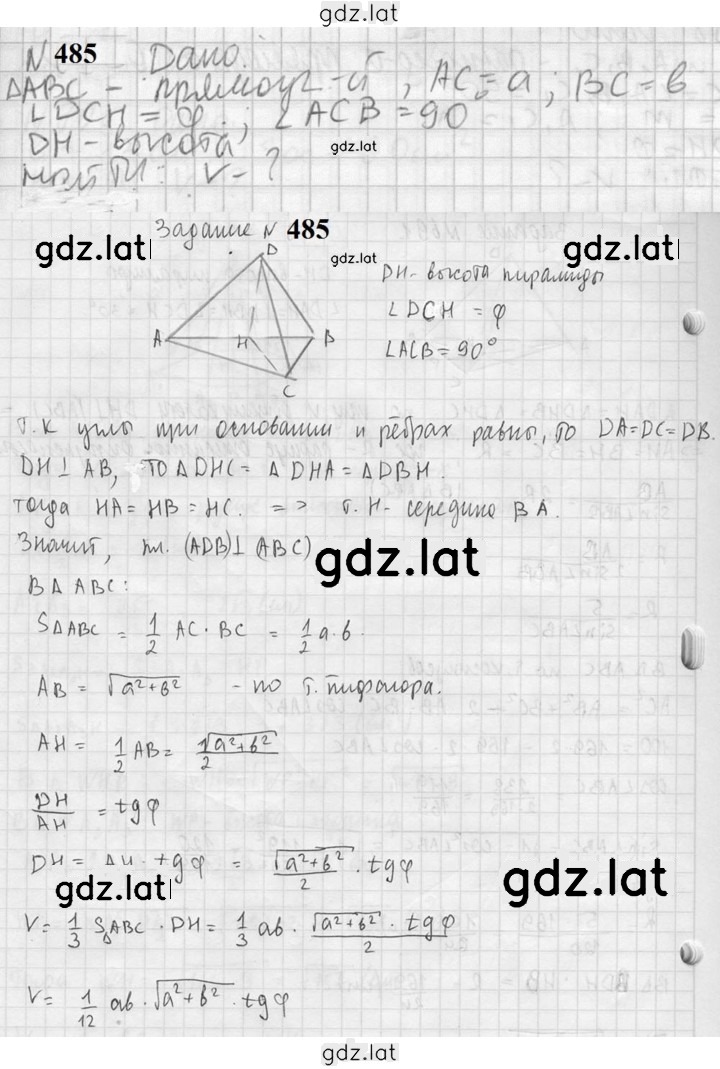 gdz.lat
N 485 Дано:
ΔABC - прямоуг-й, AC = a; BC = в
∠DCH = φ; ∠ACB = 90
DH - высота
gdz.lat
найти: V - ?
Задание N 485
gdz.lat
gdz.lat
D
A
H
B
C
DH - высота пирамиды
∠DCH = φ
∠ACB = 90°
gdz.lat
Т.к углы при основании и рёбрах равны, то DA=DC=DB.
DH⊥AB, то ΔDHC = ΔDHA = ΔDBH.
тогда HA = HB = HC. => т. H - середина BA.
Значит, пл. (ADB)⊥(ABC)
gdz.lat
В ΔABC:
SΔABC = 1/2 AC·BC = 1/2 a·в.
AB = √a²+в² - по т. Пифагора.
AH = 1/2 AB = 1√a²+в²/2
DH/AH = tgφ
DH = AH · tgφ = √a²+в²/2 · tgφ
gdz.lat
gdz.lat
V = 1/3 SΔABC · DH = 1/3 aв · √a²+в² · tgφ/2
V = 1/12 aв · √a²+в² · tgφ
gdz.lat
gdz.lat